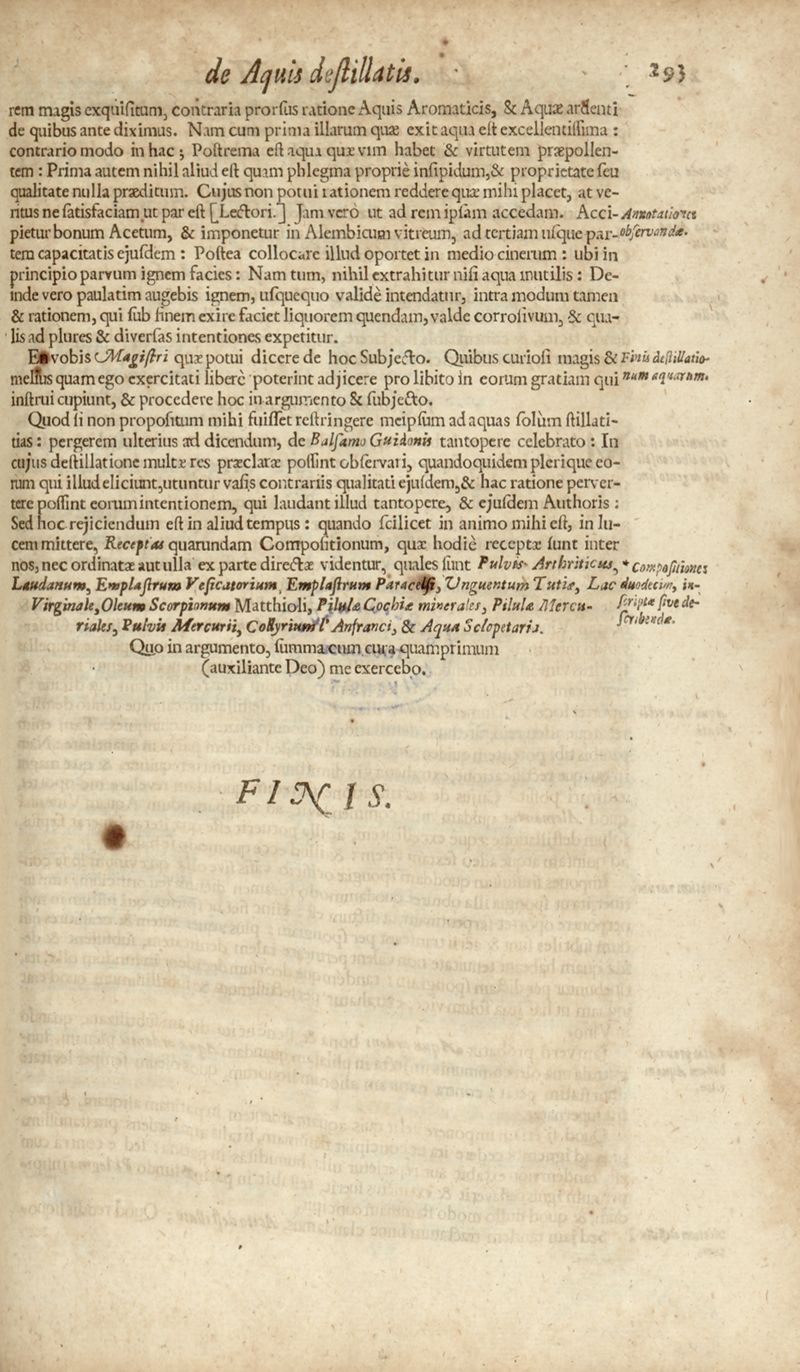 de Aquis deſtillatis. 293
rem magis exquiſitam, contraria prorſus ratione Aquis Aromaticis, & Aquæ ardenti
de quibus ante diximus. Nam cum prima illarum quæ exit aqua eſt excellentiſſima :
contrario modo in hac ; Poſtrema eſt aqua quæ vim habet & virtutem præpollen-
tem : Prima autem nihil aliud eſt quam phlegma propriè inſipidum,& proprietate ſeu
qualitate nulla præditum. Cujus non potui rationem reddere quæ mihi placet, at ve-
ritus ne ſatisfaciam ut par eſt [Lectori.] Jam verò ut ad rem ipſam accedam. Acci-
pietur bonum Acetum, & imponetur in Alembicum vitreum, ad tertiam uſque par-
tem capacitatis ejuſdem : Poſtea collocare illud oportet in medio cinerum : ubi in
principio parvum ignem facies : Nam tum, nihil extrahitur niſi aqua inutilis : De-
inde vero paulatim augebis ignem, uſquequo validè intendatur, intra modum tamen
& rationem, qui ſub finem exire faciet liquorem quendam, valde corroſivum, & qua-
lis ad plures & diverſas intentiones expetitur.
En vobis Magiſtri quæ potui dicere de hoc Subjecto. Quibus curioſi magis &
melius quam ego exercitati liberè poterint adjicere pro libito in eorum gratiam qui
inſtrui cupiunt, & procedere hoc in argumento & ſubjecto.
Quod ſi non propoſitum mihi fuiſſet reſtringere meipſum ad aquas ſolùm ſtillati-
tias : pergerem ulterius ad dicendum, de Balſamo Guidonis tantopere celebrato : In
cujus deſtillatione multæ res præclaræ poſſint obſervari, quandoquidem plerique eo-
rum qui illud eliciunt,utuntur vaſis contrariis qualitati ejuſdem,& hac ratione perver-
tere poſſint eorum intentionem, qui laudant illud tantopere, & ejuſdem Authoris :
Sed hoc rejiciendum eſt in aliud tempus : quando ſcilicet in animo mihi eſt, in lu-
cem mittere, Receptas quarundam Compoſitionum, quæ hodiè receptæ ſunt inter
nos, nec ordinatæ aut ulla ex parte directæ videntur, quales ſunt Pulvis Arthriticus,
Laudanum, Emplaſtrum Veſicatorium, Emplaſtrum Paracelſi, Unguentum Tutiæ, Lac
Virginale, Oleum Scorpionum Matthioli, Pilulæ Cochiæ minerales, Pilulæ Mercu-
riales, Pulvis Mercurii, Collyrium Anfranci, & Aqua Sclopetaria.
Quo in argumento, ſumma cum cura quamprimum
(auxiliante Deo) me exercebo.
Annotationes
obſervandæ.
Finis deſtillatio-
num aquarum.
* Compoſitiones
duodecim, in-
ſcriptæ ſive de-
ſcribendæ.
FINIS.